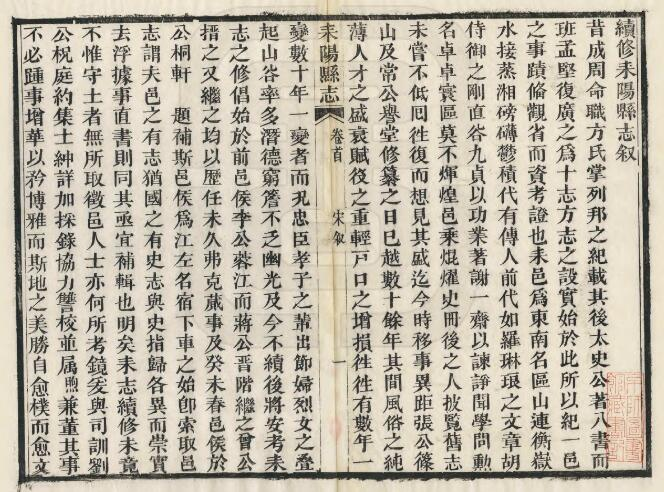 續修耒陽縣志叙
昔成周命職方氏掌列邦之紀載其後太史公著八書而
班孟堅復廣之爲十志方志之設實始於此所以紀一邑
之事蹟脩觀省而資考證也耒邑爲東南名區山連衡嶽
水接蒸湘磅礴鬱積代有傳人前代如羅琳琅之文章胡
侍御之剛直谷九貞以功業著謝一齋以諫諍聞學問勳
名卓卓寰區莫不輝煌邑乘焜燿史冊後之人披覽舊志
未嘗不低囘徃復而想見其盛迄今時移事異距張公篠
山及常公譽堂修纂之日已越數十餘年其間風俗之純
薄人才之盛衰賦役之重輕戸口之增損徃徃有數年一
耒陽縣志
卷首
宋叙
一
變數十年一變者而况忠臣孝子之輩出節婦烈女之叠
起山谷率多潛德窮簷不乏幽光及今不續後將安考耒
志之修倡始於前邑侯李公蓉江而蔣公晋階繼之曾公
搢之又繼之均以歴任未久弗克蕆事及癸未春邑侯於
公桐軒 題補斯邑侯爲江左名宿下車之始卽索取邑
志謂夫邑之有志猶國之有史志與史指歸各異而崇實
去浮據事直書則同其亟宜補輯也明矣耒志續修未竟
不惟守土者無所取徵邑人士亦何所考鏡爰與司訓劉
公柷庭約集士紳詳加採錄協力讐校並属煦兼董其事
不必踵事增華以矜博雅而斯地之美勝自愈樸而愈文